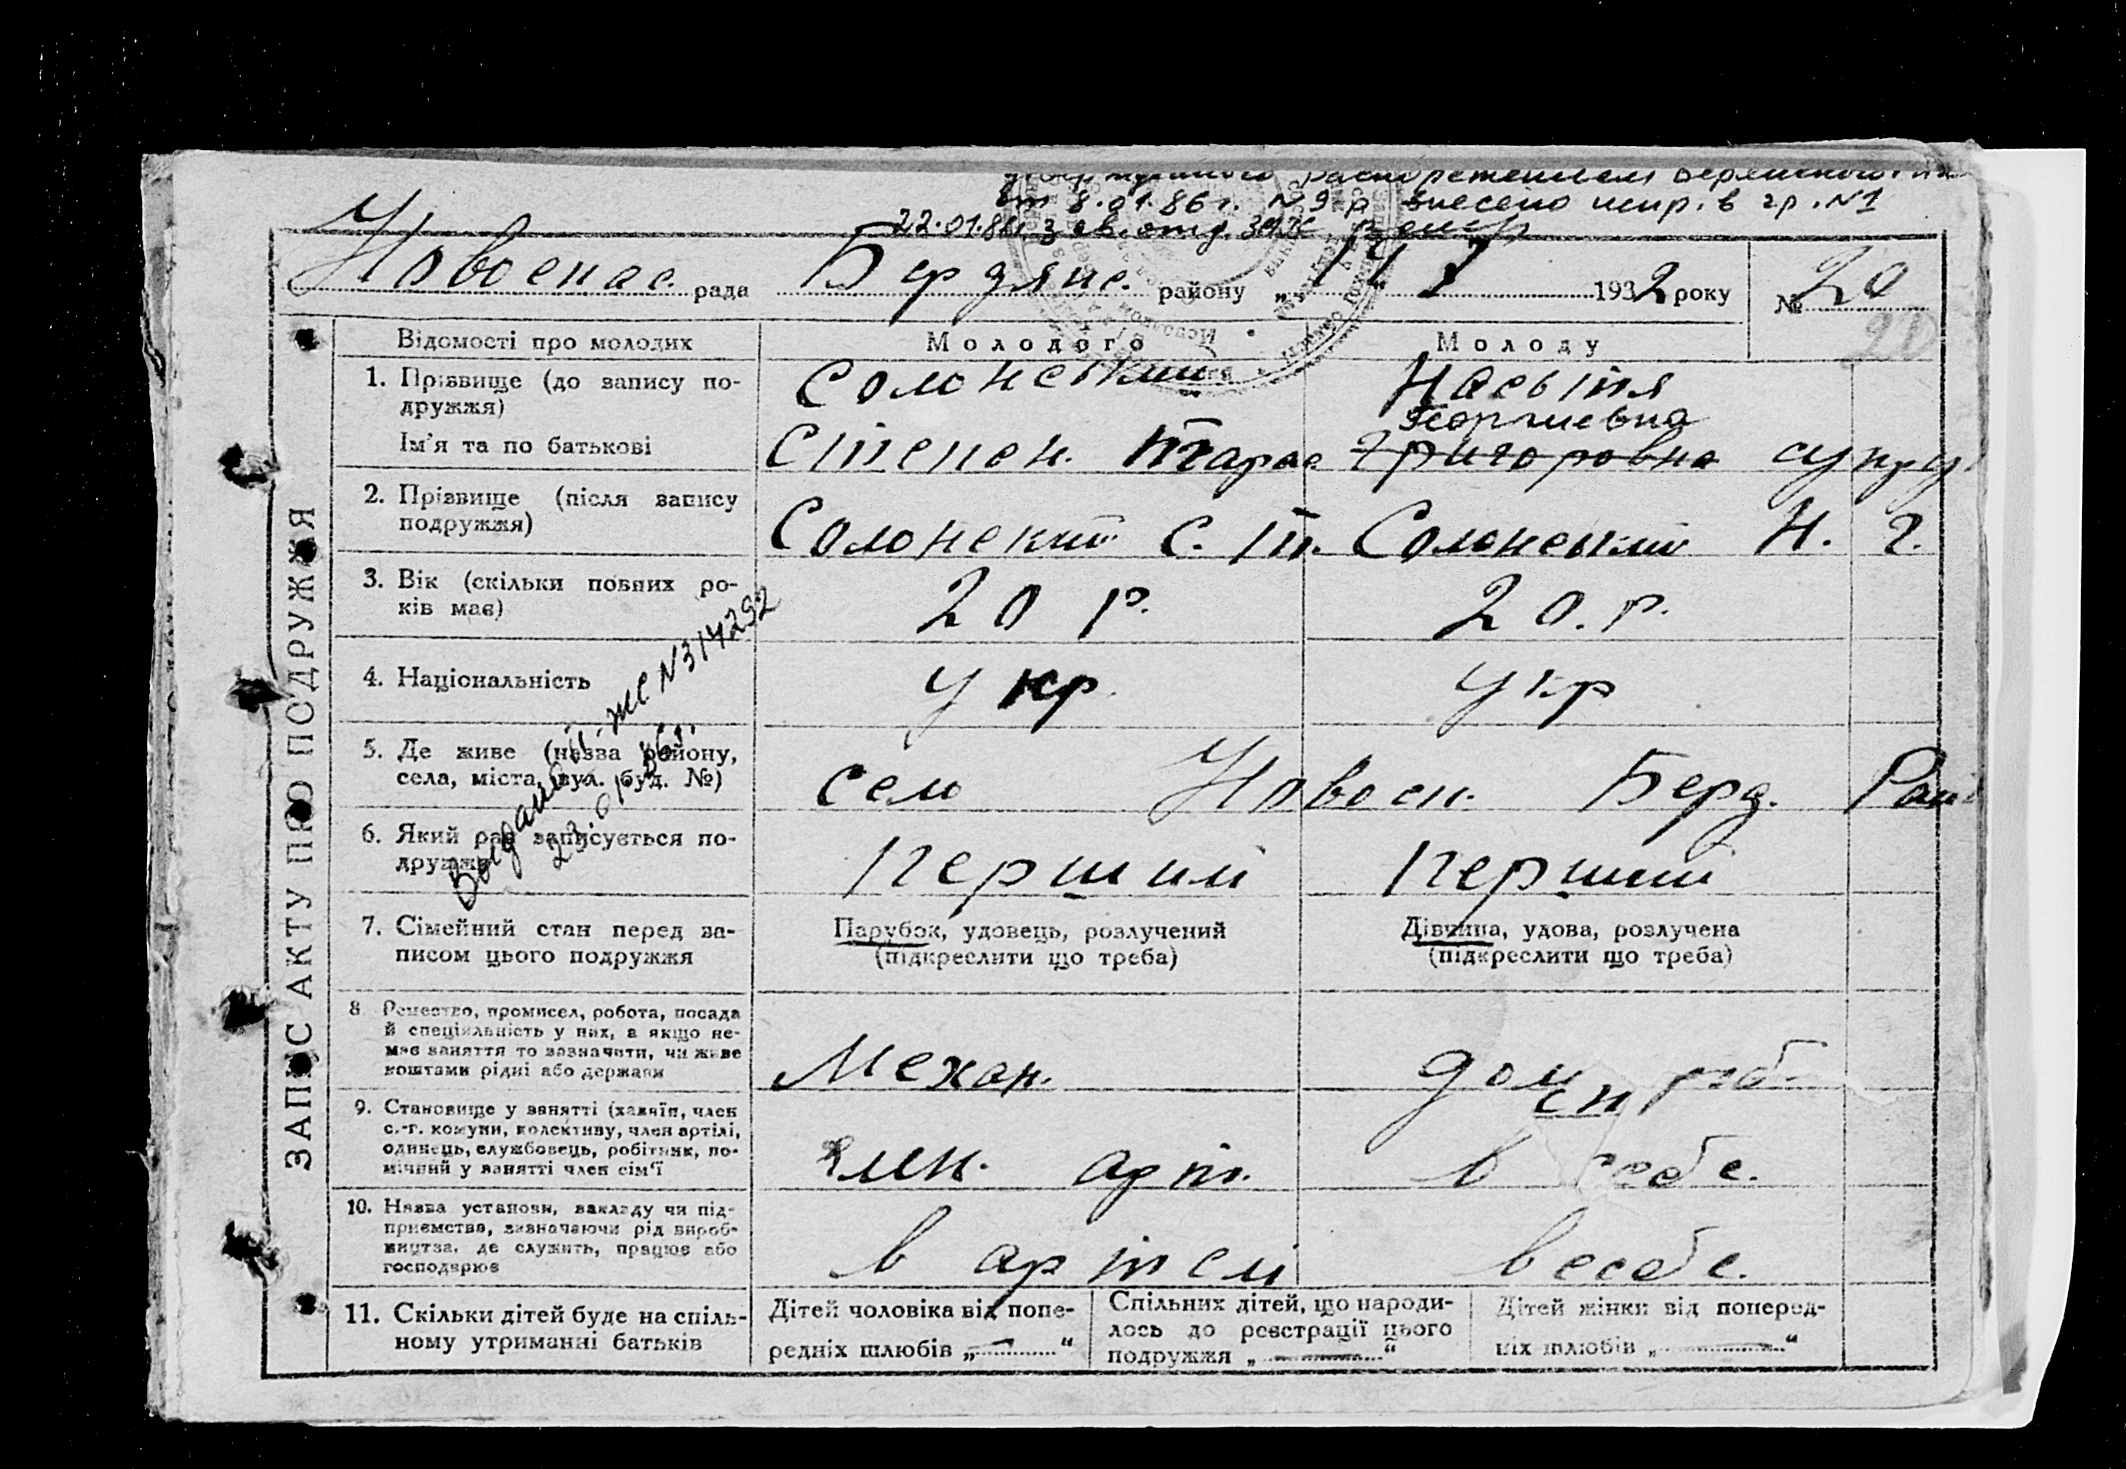 от 8.01.86 г. №9 р внесено испр. в гр. №1
22.01.86г. зав. отд. ЗАГС
Новоспас. рада Бердянс. району „14“ I 1932 року № 20
20
ЗАПИС АКТУ ПРО ПОДРУЖЖЯ
Відомості про молодих Молодого Молоду
1. Прізвище (до запису по-
дружжя)
Солонський
Ім'я та по батькові
Георгиевна
Степан. Тарас Григоровна
2. Прізвище (після запису
подружжя)
Солонский С. Т. Солонський Н. Г.
3. Вік (скільки повних ро-
ків має)
20 р. 20. р.
4. Національність укр. укр
5. Де живе (назва району,
села, міста, вул. буд. №)
село Новосп. Берд. Рай
6. Який раз записується по-
дружжя
Перший Перший
7. Сімейний стан перед за-
писом цього подружжя
Парубок, удовець, розлучений
(підкреслити що треба)
Дівчина, удова, розлучена
(підкреслити що треба)
8. Ремество, промисел, робота, посада
й спеціяльність у них, а якщо не-
має заняття то зазначити, чи живе
коштами рідні або держави
Механ. дом
9. Становище у занятті (хазяїн, член
с.-г. комуни, колективу, член артілі,
одинець, службовець, робітник, по-
мічний у занятті член сім'ї
член. арт. в себе.
10. Назва установи, закладу чи під-
приємства, зазначаючи рід вироб-
ництва, де служить, працює або
господарює
в артелі в себе.
11. Скільки дітей буде на спіль-
ному утриманні батьків
Дітей чоловіка від попе-
редніх шлюбів „—“
Спільних дітей, що народи-
лось до реєстрації цього
подружжя „—“
Дітей жінки від поперед-
ніх шлюбів „—“
№314292
23.01.86г.